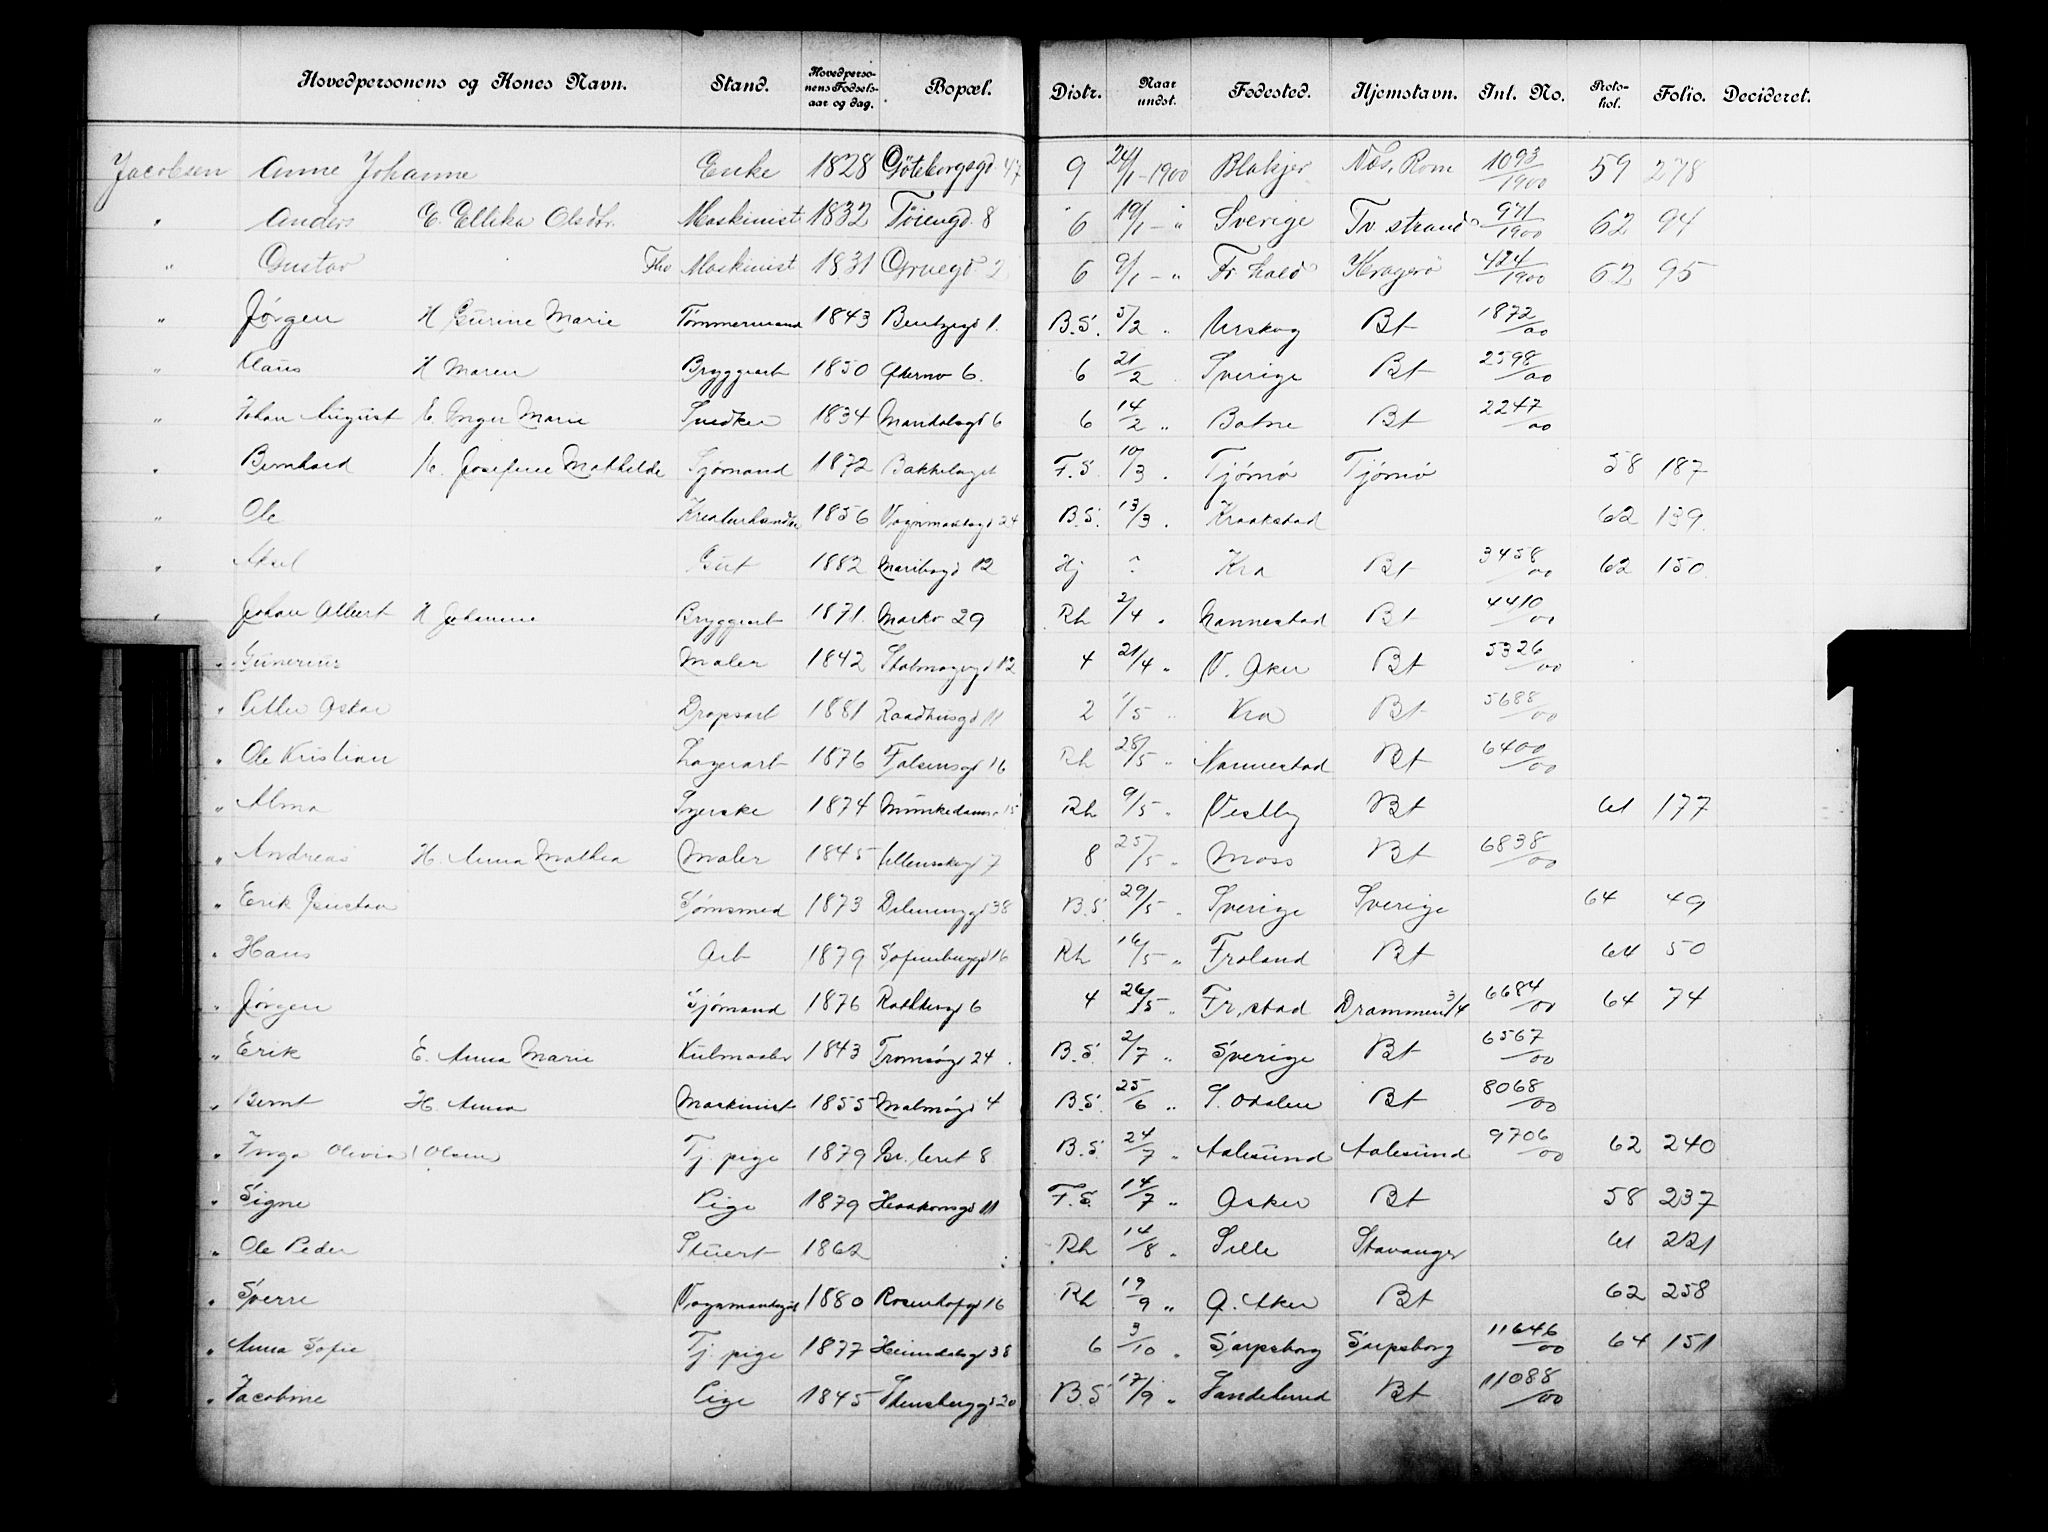 Hovedpersonens og Kones Navn. Stand. Hovedpersonens Fødselsaar og dag. Bopæl. Distr. Naar undst. Fødested. Hjemstavn. Int. No. Protokol. Folio. Decideret.
Jacobsen Anne Johanne Enke 1828 Göteborgsgd 47 9 24/1-1900 Blakjer Næs, Rom 1093/1900 59 278
" Anders E. Ellika Olsdtr. Maskinist 1832 Töiengd. 8 6 19/1 - " Sverige Tv strand 971/1900 62 94
" Gustav Fhv Maskinist 1831 Gruegd 2 6 9/1 - " Fr hald Kragerö 424/1900 62 95
" Jørgen H Gurine Marie Tømmermand 1843 Bentzegd 1. B.S. 5/2 " Urskog Bt 1872/00
" Klaus H Maren Bryggearb 1850 6. 6 21/2 " Sverige Bt 2598/00
" Johan August E. Inger Marie Snedker 1834 Maridalsgd 6 6 14/2 " Botne Bt 2247/00
" Bernhard H. Josefine Mathilde Sjømand 1872 Bakkelaget F.S. 10/3 " Tjømø Tjømø 58 187
" Ole Kreaturhandler 1856 Vognmandsgd 24 B.S. 13/3 " Kraakstad 62 139
" Aksel Gut 1882 Maribogd 12 Hj ? Kra Bt 3458/00 62 150
" Johan Albert H Johanne Bryggearb 1871 Markv 29 Rh 2/4 " Nannestad Bt 4410/00
" Gunerius Maler 1842 Stolmagergd 12 4 21/4 " V. Aker Bt 5326/00
" Petter Oskar Dropsarb 1881 Raadhusgd 11 2 1/5 " Kra Bt 5688/00
" Ole Kristian Lagerarb 1876 Falsensgd 16 Rh 28/5 " Nannestad Bt 6400/00
" Alma Syerske 1874 Munkedamsv 15 Rh 9/5 " Vestby Bt 61 177
" Andreas H. Anna Mathea Maler 1845 Ullensakergd 7 8 25/5 " Moss Bt 6838/00
" Erik Gustav Grørsmed 1873 Delenenggd 38 B.S. 29/5 " Sverige Sverige 64 49
" Hans Arb 1879 Sofienberggd 16 Rh 16/5 " Froland Bt 64 50
" Jørgen Sjømand 1876 Rathkesgd 6 4 26/5 " Fr.stad Drammen 3/4 6684/00 64 74
" Erik E. Anna Marie Kulmaaler 1843 Tromsøgd 24. B.S. 2/7 " Sverige Bt 6567/00
" Bernt H. Anna Maskinist 1855 Malmøgd 4 B.S. 25/6 " S. Odalen Bt 8068/00
" Inga Olivia Olsen Tj. pige 1879 Gr. leret 8 B.S. 24/7 " Aalesund Aalesund 9706/00 62 240
" Signe Pige 1879 Haakonsgd 11 F.S. 14/7 " Asker Bt 58 237
" Ole Peder Stuert 1862 Rh 14/8 " Selle Stavanger 61 221
" Sverre Vognmandsgut 1880 Rosenhofgd 16 Rh 19/9 " Ø. Aker Bt 62 258
" Anna Sofie Tj. pige 1877 Heimdalsgd 38 6 3/10 " Sarpsborg Sarpsborg 11646/00 64 151
" Jacobine Pige 1845 Stensberggd 20 B.S 17/9 " Sandelund Bt 11088/00